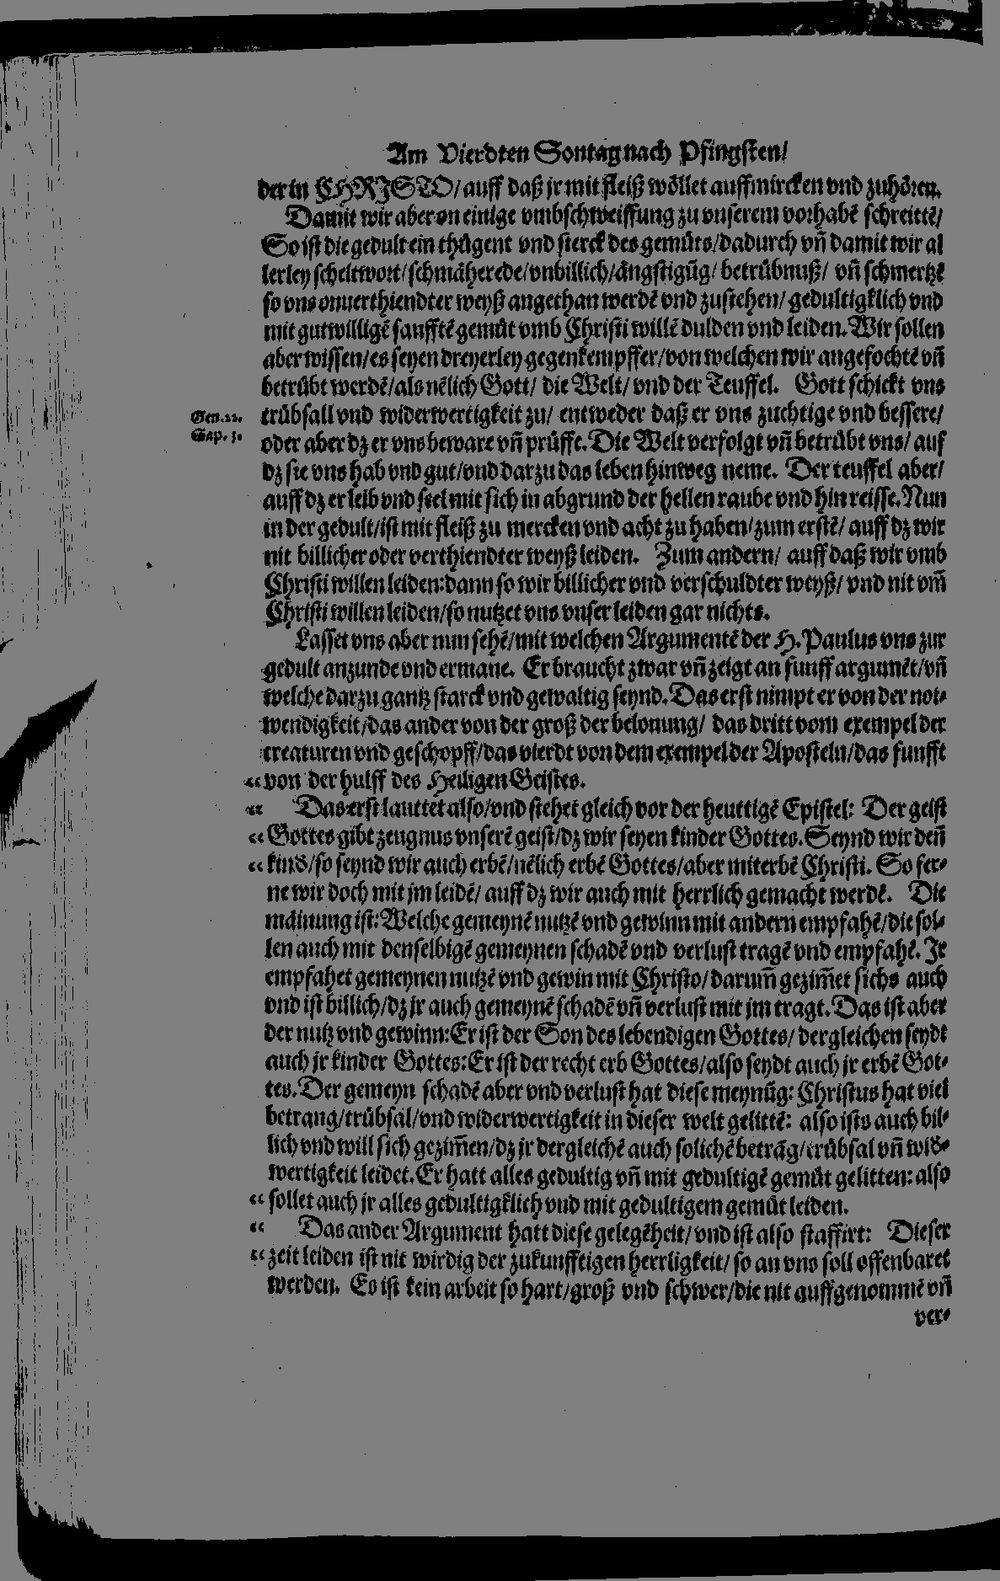 Am Vierdten Sontag nach Pfingsten/
der in CHRISTO/ auff daß jr mit fleiß wöllet auffmircken vnd zuhören.
Damit wir aber on einige vmbschweiffung zu vnserem vorhabē schreittē/
So ist die gedult ein thügent vnd sterck des gemüts/dadurch vñ damit wir al
lerley scheltwort/schmäherede/vnbillich/ängstigūg/ betrübnuß/ vñ schmertzē
so vns onuerthiendter weyß angethan werdē vnd zustehen/ gedultigklich vnd
mit gutwilligē sanfftē gemüt vmb Christi willē dulden vnd leiden. Wir sollen
aber wissen/es seyen dreyerley gegenkempffer/von welchen wir angefochtē vñ
betrübt werdē/als nēlich Gott/ die Welt/ vnd der Teuffel. Gott schickt vns
Gen.22. trübsall vnd widerwertigkeit zu/ entweder daß er vns zuchtige vnd bessere/
Sap. 3. oder aber dz er vns beware vñ prüffe. Die Welt verfolgt vñ betrübt vns/ auf
dz sie vns hab vnd gut/vnd darzu das leben hinweg neme. Der teuffel aber/
auff dz er leib vnd seel mit sich in abgrund der hellen raube vnd hin reisse. Nun
in der gedult/ist mit fleiß zu mercken vnd acht zu haben/zum erstē/ auff dz wir
nit billicher oder verthiendter weyß leiden. Zum andern/ auff daß wir vmb
Christi willen leiden:dann so wir billicher vnd verschuldter weyß/ vnd nit vm̄
Christi willen leiden/so nutzet vns vnser leiden gar nichts.
Lasset vns aber nun sehē/mit welchen Argumentē der H. Paulus vns zur
gedult anzunde vnd ermane. Er braucht zwar vñ zeigt an funff argumēt/vñ
welche darzu gantz starck vnd gewaltig seynd. Das erst nimpt er von der not-
wendigkeit/das ander von der groß der belonung/ das dritt vom exempel der
creaturen vnd geschopff/das vierdt von dem exempel der Aposteln/das funfft
“ von der hulff des Heiligen Geistes.
“ Das erst lauttet also/vnd stehet gleich vor der heuttigē Epistel: Der geist
“ Gottes gibt zeugnus vnserē geist/dz wir seyen kinder Gottes. Seynd wir deñ
“ kind/so seynd wir auch erbē/nēlich erbē Gottes/aber miterbē Christi. So fer-
ne wir doch mit jm leidē/ auff dz wir auch mit herrlich gemacht werdē. Die
mäinung ist:Welche gemeynē nutzē vnd gewinn mit andern empfahē/die sol-
len auch mit denselbigē gemeynen schadē vnd verlust tragē vnd empfahē. Jr
empfahet gemeynen nutzē vnd gewin mit Christo/darum̄ gezim̄et sichs auch
vnd ist billich/dz jr auch gemeynē schadē vñ verlust mit jm tragt. Das ist aber
der nutz vnd gewinn:Er ist der Son des lebendigen Gottes/ dergleichen seydt
auch jr kinder Gottes:Er ist der recht erb Gottes/also seydt auch jr erbē Got-
tes. Der gemeyn schadē aber vnd verlust hat diese meynūg: Christus hat viel
betrang/trübsal/vnd widerwertigkeit in dieser welt gelittē: also ists auch bil-
lich vnd will sich gezim̄en/dz jr dergleichē auch solichē betrāg/trübsal vñ wid-
wertigkeit leidet. Er hatt alles gedultig vñ mit gedultigē gemüt gelitten: also
“ sollet auch jr alles gedultigklich vnd mit gedultigem gemüt leiden.
“ Das ander Argument hatt diese gelegēheit/ vnd ist also staffirt: Dieser
“ zeit leiden ist nit wirdig der zukunfftigen herrligkeit/ so an vns soll offenbaret
werden. Es ist kein arbeit so hart/groß vnd schwer/die nit auffgenommē vñ
ver-